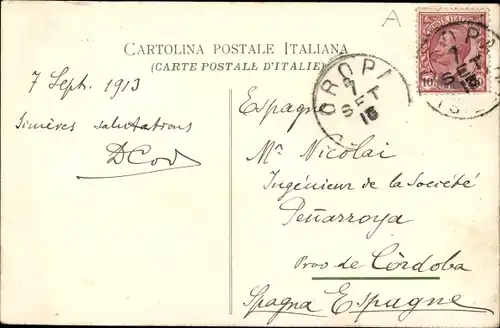 A
CARTOLINA POSTALE ITALIANA
(CARTE POSTALE D'ITALIE)
7 Sept. 1913
salutations
OROPA
7
SET
13
Espagne
Mr Nicolai
Ingénieur de la Société
Peñarroya
Prov de Còrdoba
Spagna Espagne